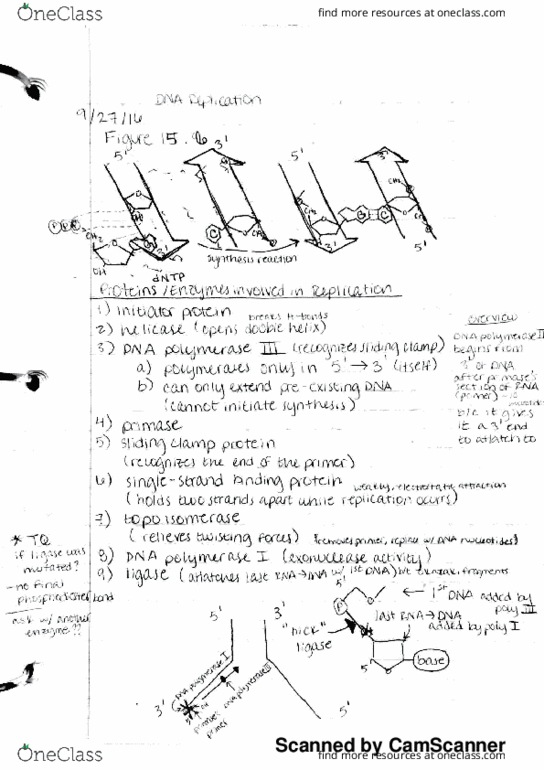 OneClass
find more resources at oneclass.com
DNA Replication
9/27/16
Figure 15.6
5' 3' 5' 3'
CH2
OH
dNTP
G C
synthesis reaction
3' 5'
Proteins/Enzymes involved in Replication
1) initiator protein
breaks H-bonds
2) helicase (opens double helix)
3) DNA polymerase III (recognizes sliding clamp)
a) polymerates only in 5' → 3' (itself)
b) can only extend pre-existing DNA
(cannot initiate synthesis)
4) primase
5) sliding clamp protein
(recognizes the end of the primer)
6) single-strand binding protein
weakly, electrostatic attraction
(holds two strands apart while replication occurs)
7) topoisomerase
(relieves twisting forces)
(removes primer, replace w/ DNA nucleotides)
8) DNA polymerase I (exonuclease activity)
9) ligase (attatches last RNA→DNA w/ 1st DNA) b/t okazaki fragments
overview
DNA polymerase III
begins from
3' of DNA
after primase's
section of RNA
(primer)
b/c it gives
it a 3' end
to attatch to
* TQ
if ligase was
mutated?
- no final
phosphodiester bond
ask w/ another
enzyme??
5' 3'
DNA polymerase I
DNA polymerase III
primer
3' 5'
5'
P
1st DNA added by
poly III
last RNA→DNA
added by poly I
"nick"
ligase
base
Scanned by CamScanner
OneClass
find more resources at oneclass.com